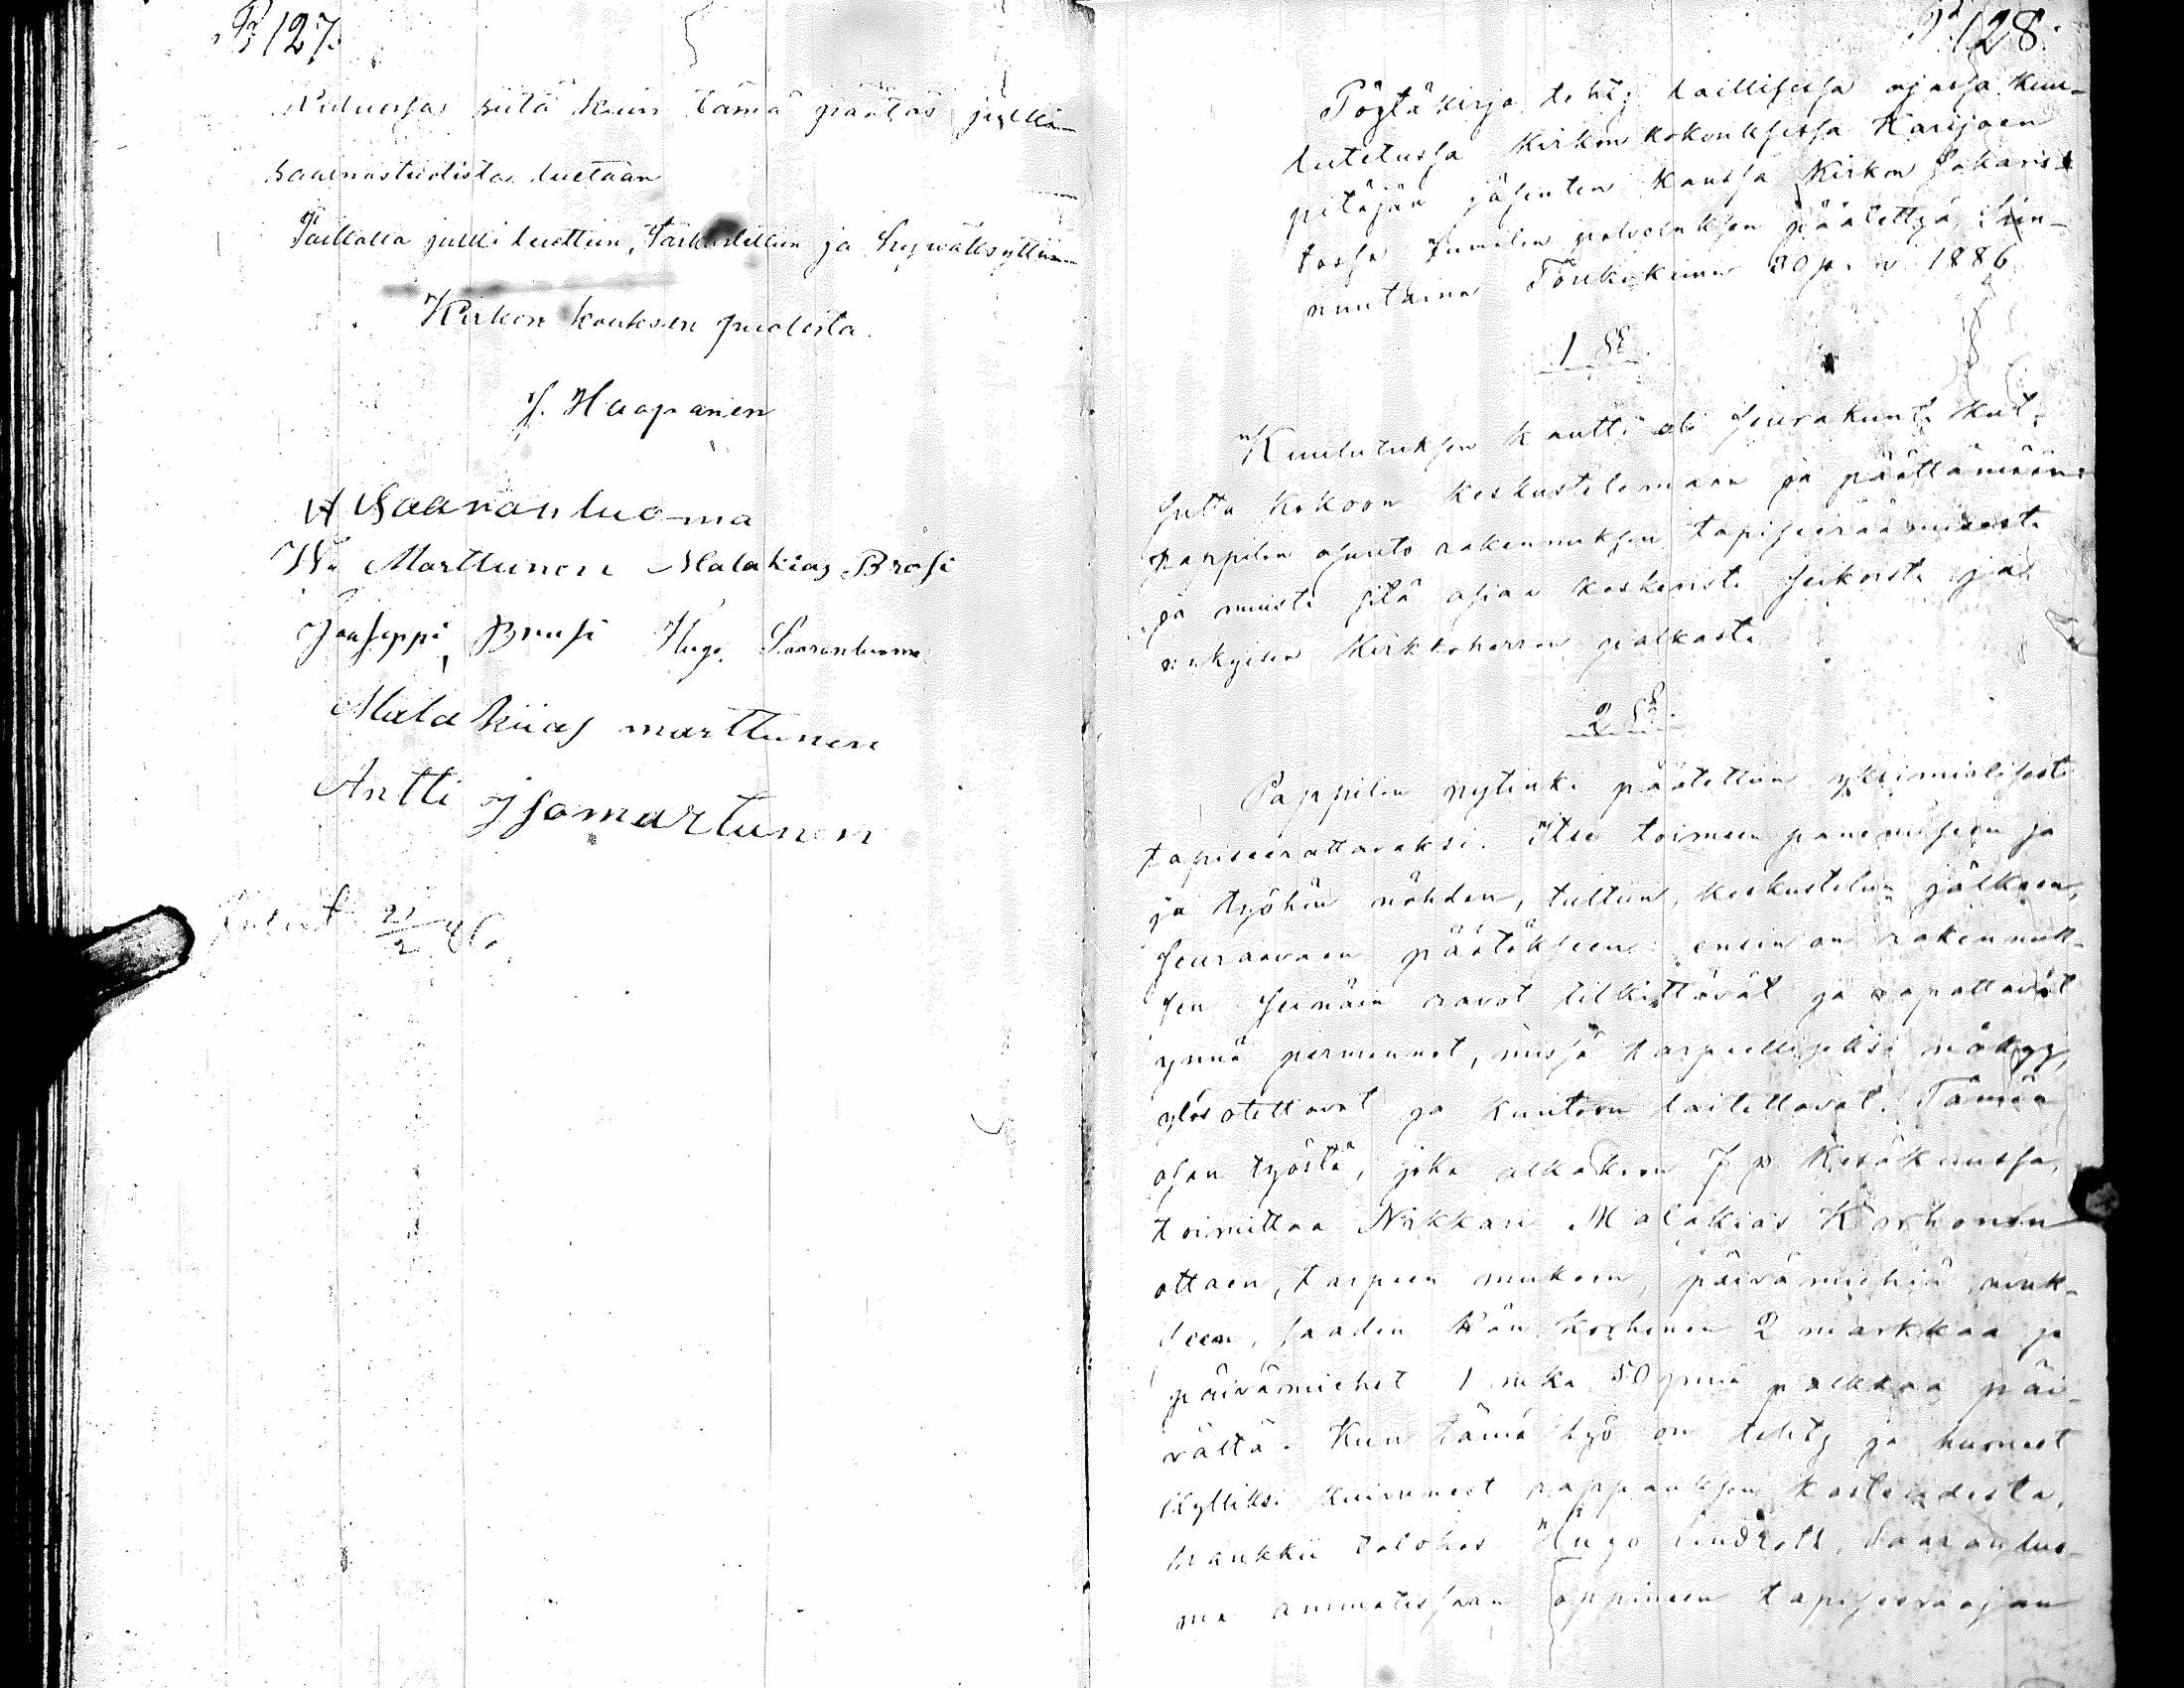 P 127.
kuluessa siitä kuin tämä päätös julki
saarnastuolista luetaan
Paikalla julki luettiin, tarkastettiin ja hyväksyttiin
Kirkon kouksen puolesta.
J. Haapanen
A Saaranluoma
W. Marttunen Malakias Bråsi
Jouseppi Bruusi Hugo Saaranluoma
Malakiias marttunen
Antti Isomartunen
21/2 86.
P 128.
Pöytäkirja tehty laillisessa ajassa kuu-
lutetussa kirkon kokouksessa Karijoen
pitäjän jäsenten kanssa kirkon sakaris-
tossa Jumalan palveluksen päätettyä, Sun-
nuntaina Toukokuun 30 p. v 1886
1 §
Kuulutuksen kautti oli seurakunta kut-
suttu kokoon keskustelemaan ja päättämään
pappilan asunto rakennuksen tapiseeraamisesta
ja muista sitä asiaa koskevista seikoista ja
nykyisen Kirkkoherran palkasta
2 §
Pappilan nytinki päätettiin yksimielisesti
tapiseerattavaksi. Itse toimeen panemiseen ja
ja työhön nähden, tultiin, keskustelun jälkeen,
seuraavaan päätökseen: ensin on rakennuk-
sen seinäin ravot tilkittävät ja rapattavat
ynnä permannot, missä tarpeelliseksi näkyy,
ylösotettavat ja kuntoon laitettavat. Tämän
osan työstä, joka alkakoon 7 p. Kesäkuussa,
toimittaa Nikkari Malakias Korhonen
ottaen, tarpeen mukaan, päivämiehiä avuk-
seen, saaden hän Korhonen 2 markkaa ja
päivämiehet 1 mka 50 pniä palkkaa päi-
vältä. Kun tämä työ on tehty ja huoneet
kylliksi kuivuneet rappauksen kosteudesta,
hankkii talokas Hugo Lindroth Saaranluo-
ma ammatissaan oppineen tapiseeraajan